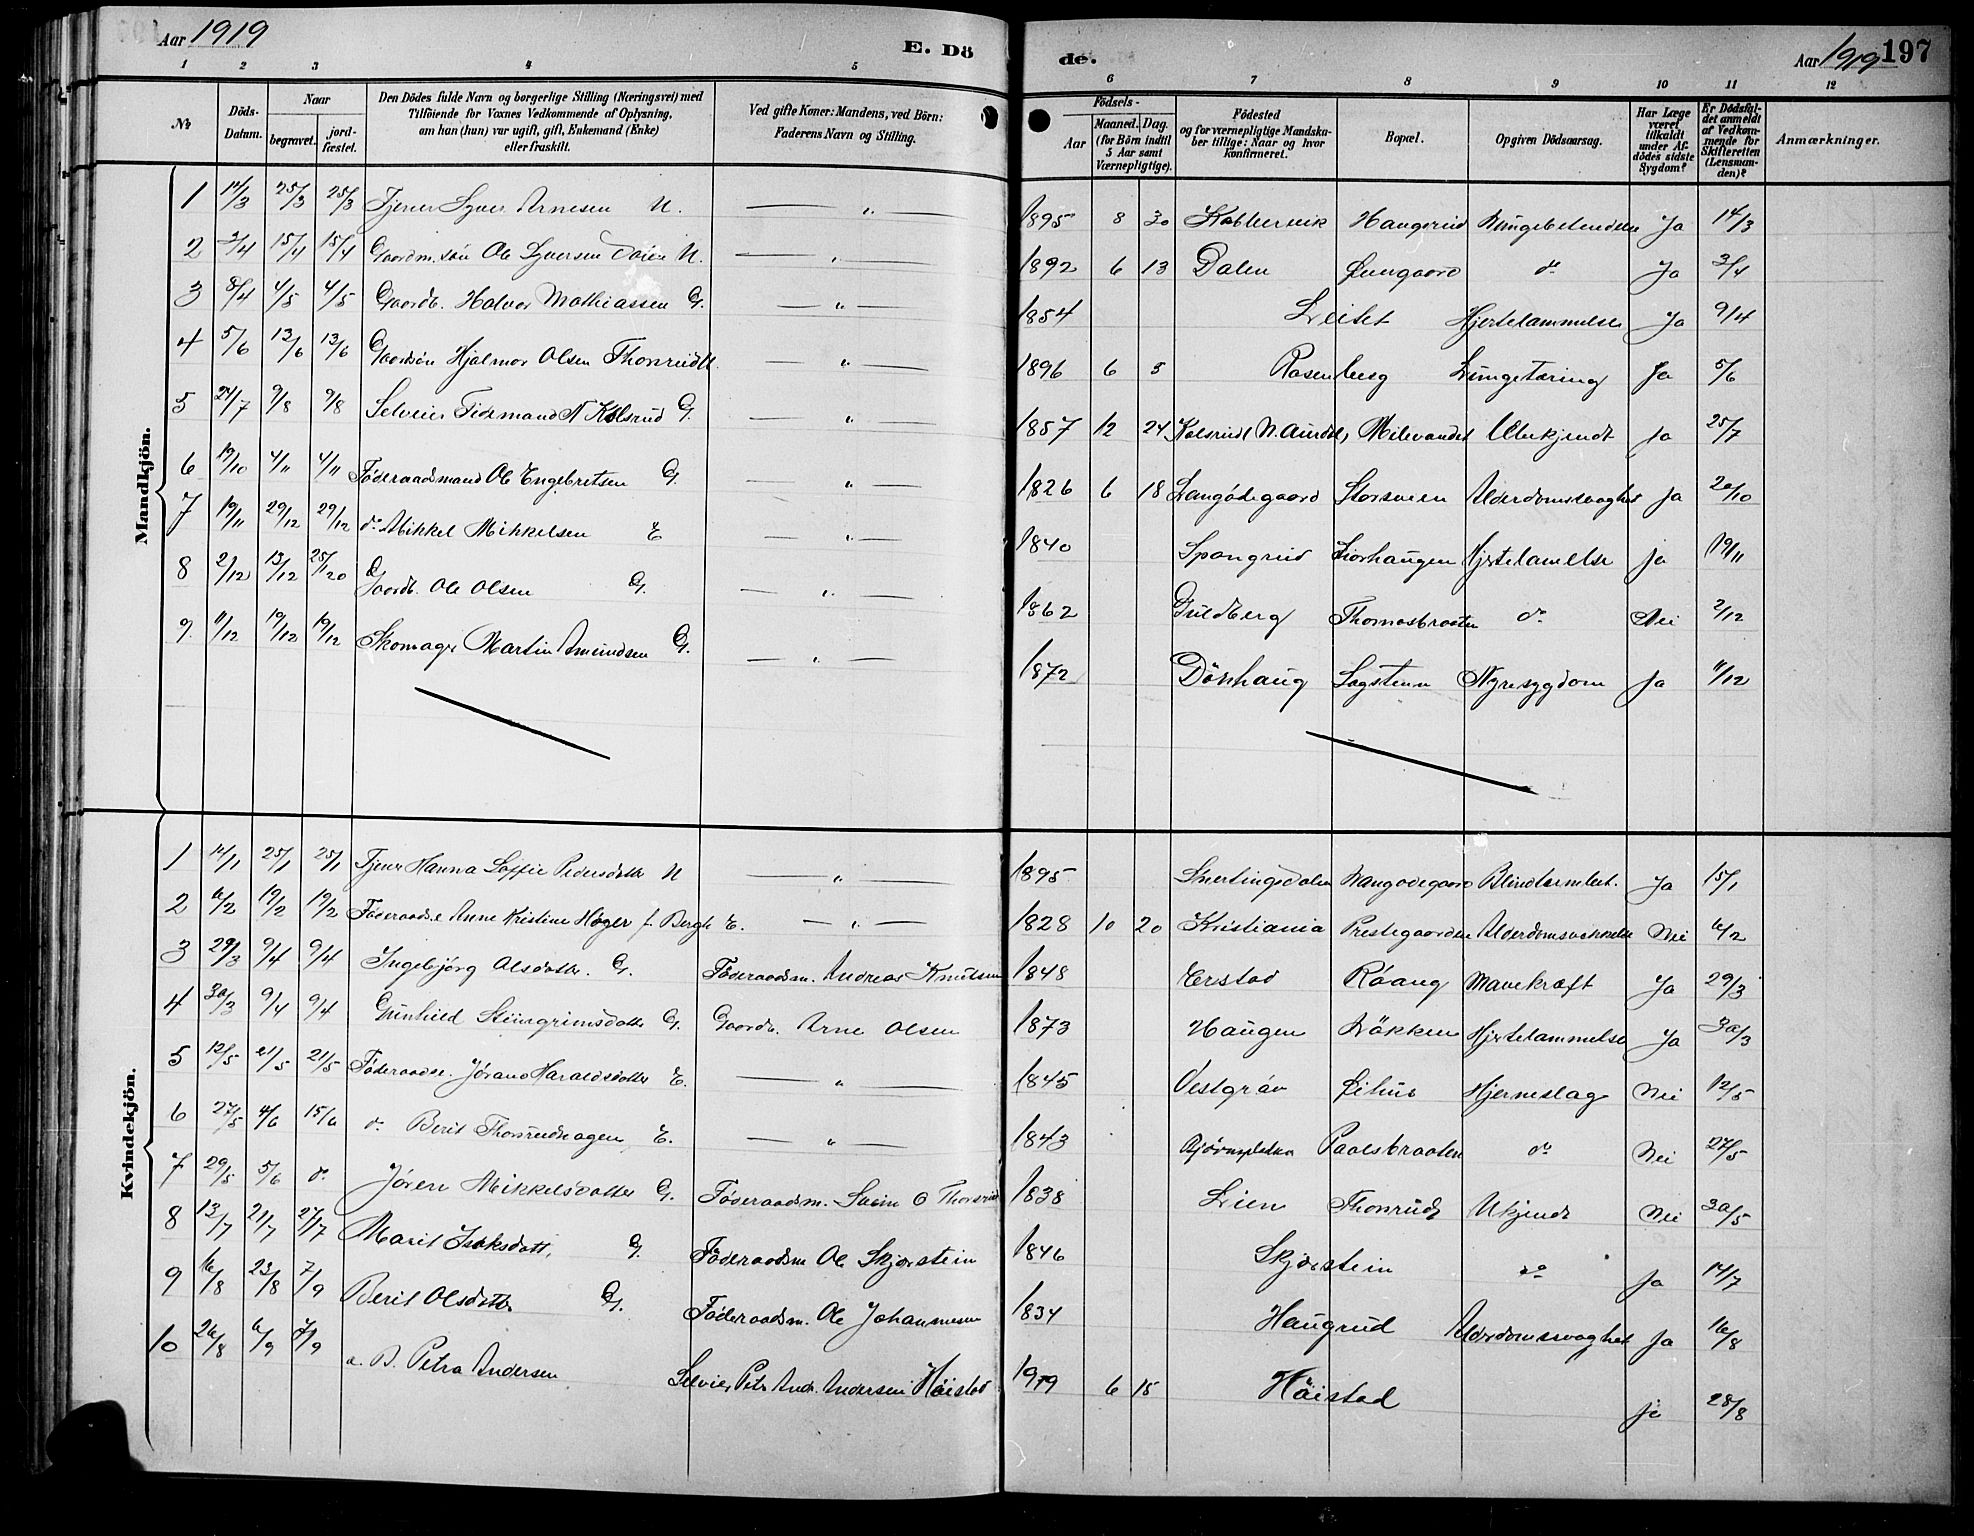 Aar 1919
E. Dö
de.
Aar 1919 197
1 2 3 4 5 6 7 8 9 10 11 12
No Döds-Datum. Naar begravet. jord-fæstet. Den Dödes fulde Navn og borgerlige Stilling (Næringsvei) med Tilföiende for Voxnes Vedkommende af Oplysning, om han (hun) var ugift, gift, Enkemand (Enke) eller fraskilt. Ved gifte Koner: Mandens, ved Börn: Faderens Navn og Stilling. Födsels- Aar Maaned. Dag. (for Börn indtil 5 Aar samt Værnepligtige). Födested og for værnepligtige Mandska-ber tillige: Naar og hvor konfirmeret. Bopæl. Opgiven Dödsaarsag. Har Læge været tilkaldt under Af-dödes sidste Sygdom? Er Dödsfal-det anmeldt af Vedkom-mende for Skifteretten (Lensman-den)? Anmærkninger.
Mandkjön.
1 12/3 25/3 25/3 Tjener Syver Arnesen U. — " — 1895 8 30 Haugsrud Ja 14/3
2 2/4 15/4 15/4 Gaardm. søn Ole Syversen U. — " — 1892 6 13 Dalen do Ja 3/4
3 8/4 4/5 4/5 Gaardb. Halvor Mathiassen G. — " — 1854 Leitet Hjertelammelse Ja 9/4
4 5/6 13/6 13/6 Gaardsøn Hjalmar Olsen Thonrud U. — " — 1896 6 5 Rosenberg Lungetæring Ja 5/6
5 24/7 9/8 9/8 Selveier Tidemand N Kolsrud G. — " — 1857 12 24 Kolsrud N. Aurdal, Milevandet Ubekjendt Ja 25/7
6 19/10 4/11 4/11 Føderaadsmand Ole Engebretsen G. — " — 1826 6 18 Langødegaard Storsveen Alderdomssvaghet Ja 20/10
7 19/11 29/12 29/12 do Mikkel Mikkelsen E — " — 1840 Spangrud Hjertelamelse Ja 19/11
8 2/12 13/12 25/11 20 Gaardb. Ole Olsen G. — " — 1862 Guldberg Thomasbraaten do Nei 2/12
9 11/12 19/12 19/12 Skomager Martin Amundsen G. — " — 1872 Dönhaug Sagstuen Nyresygdom Ja 11/12
Kvindekjön.
1 14/1 25/1 25/1 Tjener Hanna Soffie Pedersdatter U — " — 1895 Snertingsdalen Langødegaard Blindtarmbet. Ja 15/1
2 6/2 19/2 19/2 Føderaadse. Anne Kristine Høger f. Bergh E. — " — 1828 10 20 Kristiania Prestegaarden Nei 6/2
3 29/3 9/4 9/4 Ingebjörg Olsdatter. G. Føderaadsm. Andreas Knutsen 1848 Erstad Røang Mavekræft Ja 29/3
4 30/3 9/4 9/4 Gunhild Steingrimsdatter G. Gaardb. Arne Olsen 1873 Haugen Løkken Hjertelammelse Ja 30/3
5 12/5 21/5 21/5 Føderaadse. Jørand Haraldsdatter E. — " — 1845 Hjerneslag Nei 12/5
6 27/5 4/6 15/6 do Berit Thonrudhagen E. — " — 1843 Paalsbraaten do Nei 27/5
7 29/5 5/6 do Jøren Mikkelsdatter G. Føderaadsm. Svein O Thonrud 1838 Lien Thonrud Ukjendt Nei 30/5
8 13/7 21/7 27/7 Marit Isaksdatt. G. Føderaadsm Ole Skjerstein 1846 Skjerstein do Ja 14/7
9 16/8 23/8 7/9 Berit Olsdatter G. Føderaadsm. Ole Johannesen 1834 Haugrud Alderdomssvaghet Ja 16/8
10 26/8 6/9 7/9 a. B. Petra Andersen Selveier Petr Andr. Andersen Höistad 1919 6 15 Höistad Ja 28/8